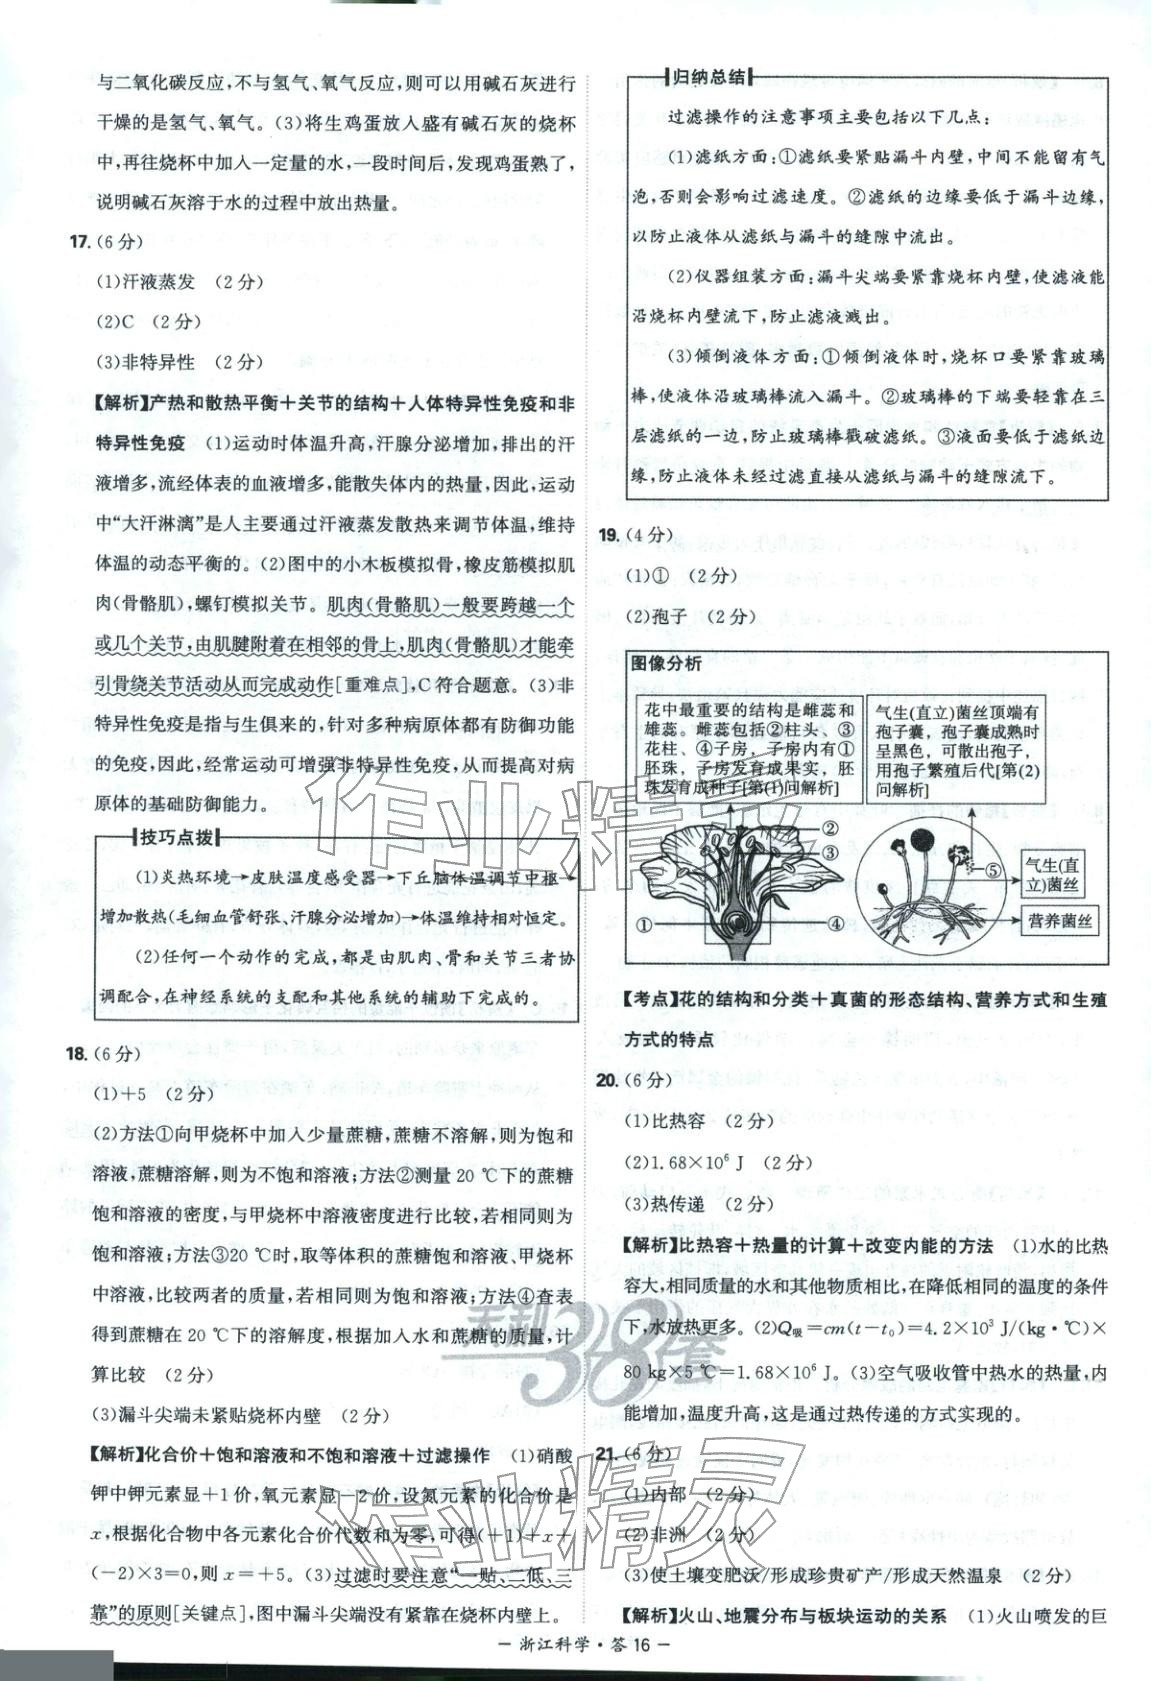 与二氧化碳反应,不与氢气、氧气反应,则可以用碱石灰进行
干燥的是氢气、氧气。(3)将生鸡蛋放人盛有碱石灰的烧杯
中,再往烧杯中加人一定量的水,一段时间后,发现鸡蛋熟了,
说明碱石灰溶于水的过程中放出热量。
17.(6分)
(1)汗液蒸发 (2分)
(2)C (2分)
(3)非特异性 (2分)
【解析】产热和散热平衡+关节的结构+人体特异性免疫和非
特异性免疫 (1)运动时体温升高,汗腺分泌增加,排出的汗
液增多,流经体表的血液增多,能散失体内的热量,因此,运动
中“大汗淋漓”是人主要通过汗液蒸发散热来调节体温,维持
体温的动态平衡的。(2)图中的小木板模拟骨,橡皮筋模拟肌
肉(骨骼肌),螺钉模拟关节。肌肉(骨骼肌)一般要跨越一个
或几个关节,由肌腱附着在相邻的骨上,肌肉(骨骼肌)才能牵
引骨绕关节活动从而完成动作[重难点],C符合题意。(3)非
特异性免疫是指与生俱来的,针对多种病原体都有防御功能
的免疫,因此,经常运动可增强非特异性免疫,从而提高对病
原体的基础防御能力。
技巧点拨
(1)炎热环境→皮肤温度感受器→下丘脑体温调节中枢→
增加散热(毛细血管舒张,汗腺分泌增加)→体温维持相对恒定。
(2)任何一个动作的完成,都是由肌肉、骨和关节三者协
调配合,在神经系统的支配和其他系统的辅助下完成的。
18.(6分)
(1)+5 (2分)
(2)方法①向甲烧杯中加人少量蔗糖,蔗糖不溶解,则为饱和
溶液,蔗糖溶解,则为不饱和溶液;方法②测量20 ℃下的蔗糖
饱和溶液的密度,与甲烧杯中溶液密度进行比较,若相同则为
饱和溶液;方法③20 ℃时,取等体积的蔗糖饱和溶液、甲烧杯
中溶液,比较两者的质量,若相同则为饱和溶液;方法④查表
得到蔗糖在20 ℃下的溶解度,根据加人水和蔗糖的质量,计
算比较 (2分)
(3)漏斗尖端未紧贴烧杯内壁 (2分)
【解析】化合价+饱和溶液和不饱和溶液+过滤操作 (1)硝酸
钾中钾元素显+1价,氧元素显-2价,设氮元素的化合价是
x,根据化合物中各元素化合价代数和为零,可得(+1)+x+
(-2)×3=0,则x=+5。(3)过滤时要注意“一贴、二低、三
靠”的原则[关键点],图中漏斗尖端没有紧靠在烧杯内壁上。
归纳总结
过滤操作的注意事项主要包括以下几点:
(1)滤纸方面:①滤纸要紧贴漏斗内壁,中间不能留有气
泡,否则会影响过滤速度。②滤纸的边缘要低于漏斗边缘,
以防止液体从滤纸与漏斗的缝隙中流出。
(2)仪器组装方面:漏斗尖端要紧靠烧杯内壁,使滤液能
沿烧杯内壁流下,防止滤液溅出。
(3)倾倒液体方面:①倾倒液体时,烧杯口要紧靠玻璃
棒,使液体沿玻璃棒流入漏斗。②玻璃棒的下端要轻靠在三
层滤纸的一边,防止玻璃棒戳破滤纸。③液面要低于滤纸边
缘,防止液体未经过滤直接从滤纸与漏斗的缝隙流下。
19.(4分)
(1)① (2分)
(2)孢子 (2分)
图像分析
花中最重要的结构是雌蕊和
雄蕊。雌蕊包括②柱头、③
花柱、④子房,子房内有①
胚珠,子房发育成果实,胚
珠发育成种子[第(1)问解析]
气生(直立)菌丝顶端有
孢子囊,孢子囊成熟时
呈黑色,可散出孢子,
用孢子繁殖后代[第(2)
问解析]
②
③
①
④
⑤
气生(直
立)菌丝
营养菌丝
【考点】花的结构和分类+真菌的形态结构、营养方式和生殖
方式的特点
20.(6分)
(1)比热容 (2分)
(2)1.68×10⁶ J (2分)
(3)热传递 (2分)
【解析】比热容+热量的计算+改变内能的方法 (1)水的比热
容大,相同质量的水和其他物质相比,在降低相同的温度的条件
下,水放热更多。(2)Q吸=cm(t-t₀)=4.2×10³ J/(kg·℃)×
80 kg×5 ℃=1.68×10⁶ J。(3)空气吸收管中热水的热量,内
能增加,温度升高,这是通过热传递的方式实现的。
21.(6分)
(1)内部 (2分)
(2)非洲 (2分)
(3)使土壤变肥沃/形成珍贵矿产/形成天然温泉 (2分)
【解析】火山、地震分布与板块运动的关系 (1)火山喷发的巨
作业精灵
天利38套
作业精灵
－浙江科学·答16－